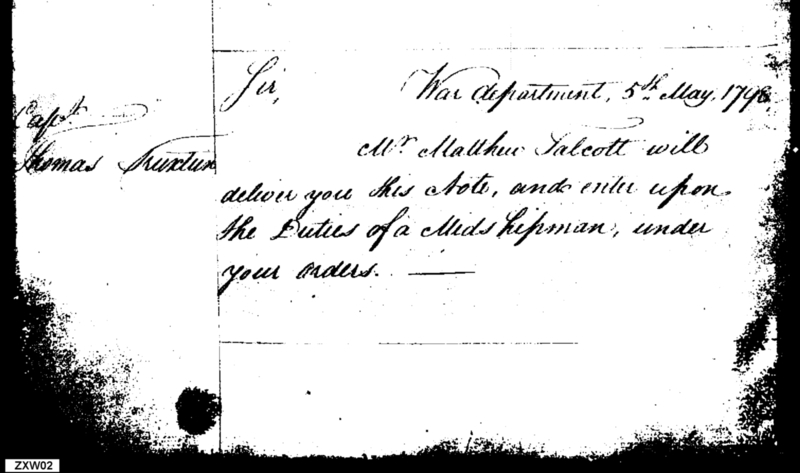 Capt.
Thomas Truxtun
Sir,
War department, 5th May, 1798.
Mr Matthew Talcott will
deliver you this Note, and enter upon
the Duties of a Midshipman, under
your orders. —
ZXW02